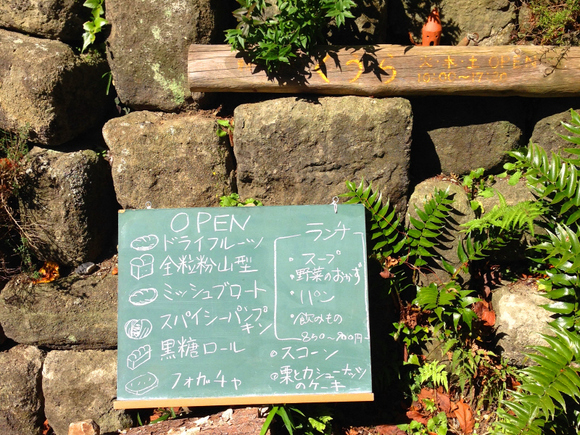 くろ
木 土 OPEN
10:00〜17:00
OPEN
ドライフルーツ
全粒粉山型
ミッシュブロート
スパイシーパンプキン
黒糖ロール
フォガチャ
ランチ
・スープ
・野菜のおかず
・パン
・飲のもの
850〜900円
・スコーン
・栗とカシューナッツ
のケーキ